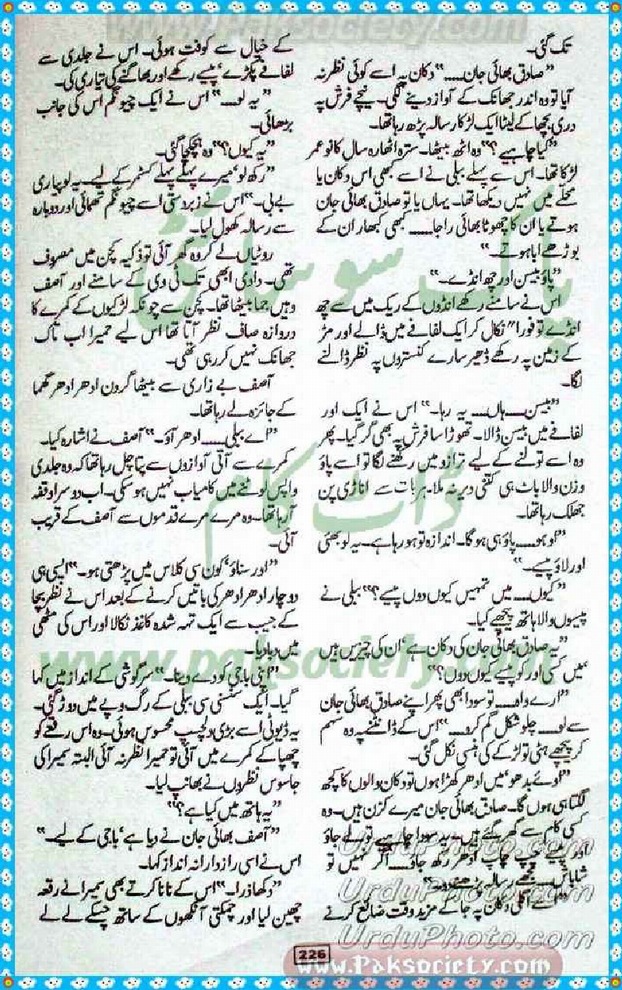 تک گئی۔
"صادق بھائی جان۔۔۔۔ "دکان پہ اسے کوئی نظر نہ
آیا تو وہ اندر جھانک کے آواز دینے لگی۔ نیچے فرش پہ
دری بچھا کے لیٹا ایک لڑکا رسالہ پڑھ رہا تھا۔
"کیا چاہیے؟" وہ اٹھ بیٹھا۔ سترہ اٹھارہ سال کا نو عمر
لڑکا تھا۔ اس سے پہلے ببلی نے اسے کبھی اس دکان یا
محلے میں نہیں دیکھا تھا۔ یہاں یا تو صادق بھائی جان
ہوتے یا ان کا چھوٹا بھائی راجا۔۔۔۔ کبھی کبھار ان کے
بوڑھے ابا ہوتے۔"
"پاؤ بیسن اور چھ انڈے۔"
اس نے سامنے رکھے انڈوں کے ریک میں سے چھ
انڈے فوراً" نکال کر ایک لفافے میں ڈالے اور مڑ
کے زمین پہ رکھے ڈھیر سارے کنستروں پہ نظر ڈالنے
لگا۔
"بیسن۔۔۔ ہاں۔۔۔ یہ رہا۔" اس نے ایک اور
لفافے میں بیسن ڈالا۔ تھوڑا سا فرش پہ بھی گر گیا۔ پھر
وہ اسے تولنے کے لیے ترازو میں رکھنے لگا تو اسے پاؤ
وزن والا باٹ ہی کتنی دیر نہ ملا۔ ہر بات سے اناڑی پن
جھلک رہا تھا۔
"اوہو۔۔۔ پاؤ ہی ہو گا۔ اندازہ تو ہو رہا ہے۔ یہ لو بھئی
اور لاؤ پیسے۔"
"کیوں۔۔۔ میں تمہیں کیوں دوں پیسے؟" ببلی نے
پیسوں والا ہاتھ پیچھے کیا۔
"یہ صادق بھائی جان کی دکان ہے' ان کی چیزیں ہیں
'میں کسی اور کو پیسے کیوں دوں؟"
"ارے واہ۔۔۔ تو سودا بھی پھر اپنے صادق بھائی جان
سے لو۔۔۔ چلو شکل گم کرو۔" اس کے ڈانٹنے پہ وہ سہم
کر پیچھے ہٹی تو لڑکے کی ہنسی نکل گئی۔
"اوئے بدھو' میں ادھر کھڑا ہوں تو دکان والوں کا کچھ
لگتا ہی ہوں گا۔ صادق بھائی جان میرے کزن ہیں۔ وہ
کسی کام سے گھر گئے ہیں۔ یہ سودا چاہیے تو لے جاؤ
اور پیسے چپ چاپ ادھر رکھ جاؤ۔۔۔ اگر نہیں تو
شاباش۔۔۔ مجھے رسالہ پڑھنے دو۔"
اسے اگلی دکان پہ جا کے مزید وقت ضائع کرنے
کے خیال سے کوفت ہوئی۔ اس نے جلدی سے
لفافے پکڑے' پیسے رکھے اور بھاگنے کی تیاری کی۔
"یہ لو۔۔۔" اس نے ایک چیونگم اس کی جانب
بڑھائی۔
"یہ کیوں؟" وہ ہچکچا گئی۔
"رکھ لو' میرے پہلے پہلے کسٹمر کے لیے۔ یہ لو پیاری
بے بی۔" اس نے زبردستی اسے چیونگم تھمائی اور دوبارہ
سے رسالہ کھول لیا۔
روٹیاں لے کر وہ گھر آئی تو ذکیہ کچن میں مصروف
تھی۔ دادی ابھی تک ٹی وی کے سامنے اور آصف
وہیں جما بیٹھا تھا۔ کچن سے چونکہ لڑکیوں کے کمرے کا
دروازہ صاف نظر آتا تھا اس لیے حمیرا اب تاک
جھانک نہیں کر رہی تھی۔
آصف بے زاری سے بیٹھا گردن ادھر ادھر گھما
کے جائزہ لے رہا تھا۔
"اے ببلی۔۔۔ ادھر آؤ۔" آصف نے اشارہ کیا۔
کمرے سے آتی آوازوں سے پتا چل رہا تھا کہ وہ جلدی
واپس لوٹنے میں کامیاب نہیں ہو سکی۔ اب دوسرا وقفہ
آ رہا تھا۔ وہ مرے مرے قدموں سے آصف کے قریب
آئی۔
"اور سناؤ' کون سی کلاس میں پڑھتی ہو۔" ایسی ہی
دو چار ادھر ادھر کی باتیں کرنے کے بعد اس نے نظر بچا
کے جیب سے ایک تہہ شدہ کاغذ نکالا اور اس کی مٹھی
میں دبا دیا۔
"اپنی باجی کو دے دینا۔" سرگوشی کے انداز میں کہا
گیا۔ ایک سنسنی سی ببلی کے رگ و پے میں دوڑ گئی۔
یہ ڈیوٹی اسے بڑی دلچسپ محسوس ہوئی۔ وہ اس رقعے کو
چھپا کے کمرے میں آئی تو حمیرا نظر نہ آئی البتہ سمیرا کی
جاسوس نظروں نے بھانپ لیا۔
"یہ ہاتھ میں کیا ہے؟"
"آصف بھائی جان نے دیا ہے' باجی کے لیے۔"
اس نے اسی رازدارانہ انداز کہا۔
"دکھا ذرا۔" اس کے نا نا کرتے بھی سمیرا نے رقعہ
چھین لیا اور چمکتی آنکھوں کے ساتھ چسکے لے لے
226
www.Paksociety.com
www.paksociety.com
پاک سوسائٹی
ڈاٹ کام
UrduPhoto.com
UrduPhoto.com
UrduPhoto.com
www.Paksociety.com